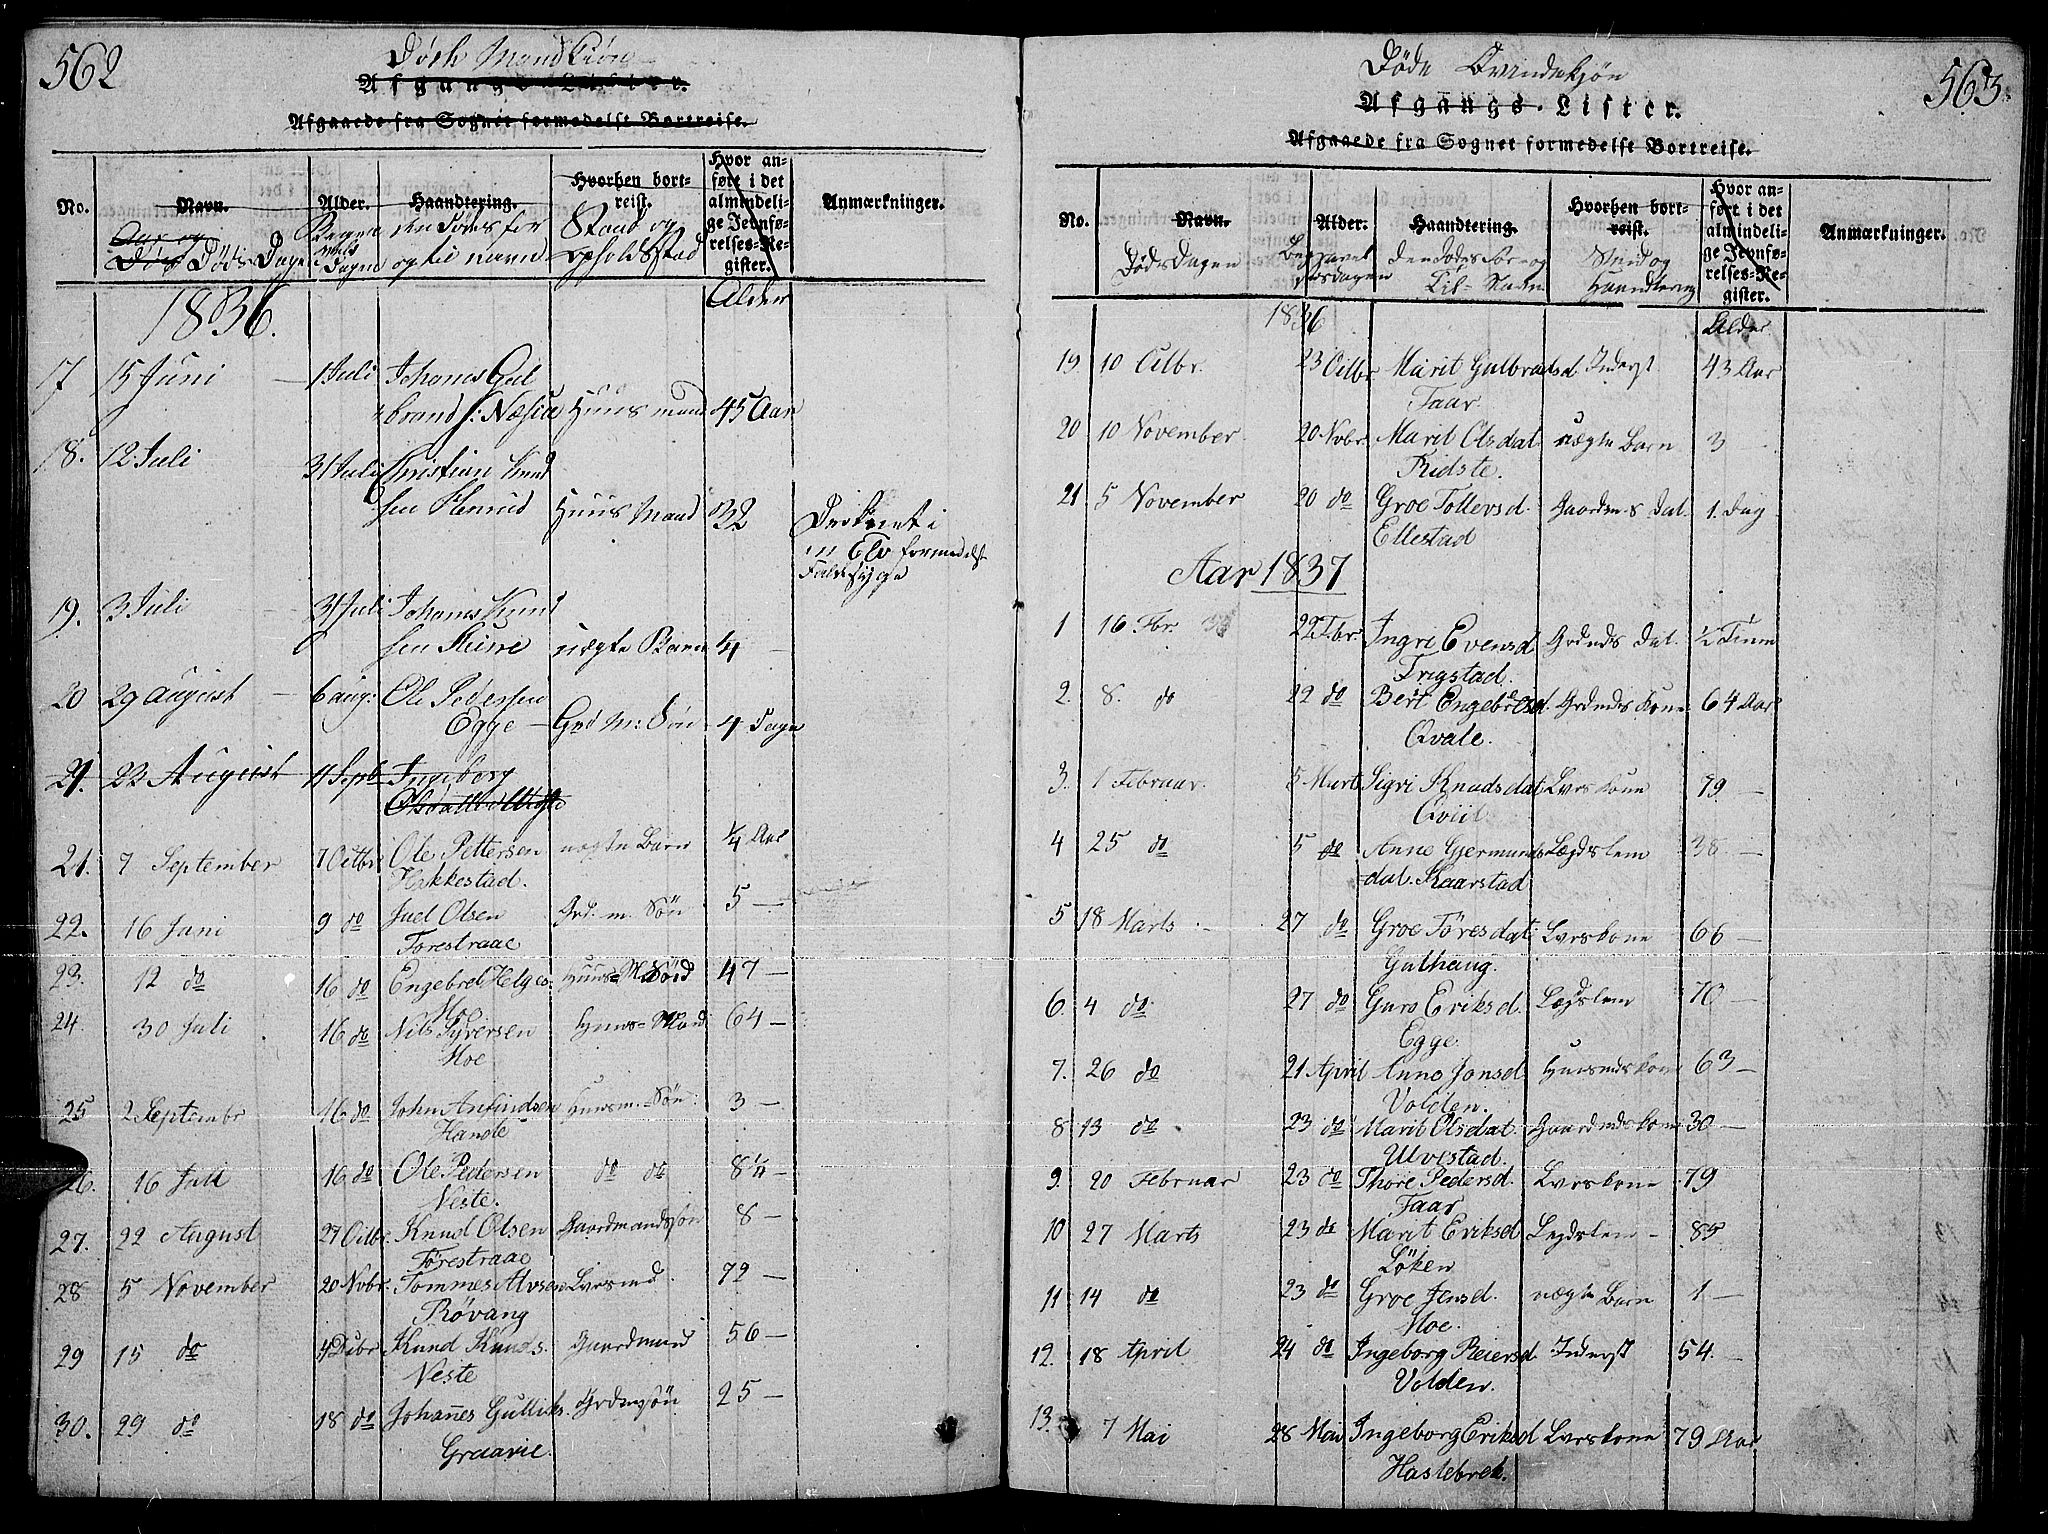 562
Døde Mandkiøn
Afgangs-Lister.
Afgaaede fra Sognet formedelst Bortreise.
No. Navn. Alder. Haandtering. Hvorhen bortreist. Hvor anført i det almindelige Jevnførelses-Register. Anmærkninger.
Aar og Døds Dage
Dagen
den Dødes for og til navn
Stand og Opholdsstad
1836. Alder
17 15 Juni 1 Juli Johannes Gulbrands: Næsia Huusmand 45 Aar
18. 12 Juli 31 Juli Christian Knudsen Huusmand 32 Druknet i en Elv formedelst Faldesyge
19. 3 Juli 31 Juli Johannes Knudsen uægte Barn 4
20 29 August 6 aug: Ole Pedersen Egge Grd M: Søn 4 Dage
21. 22 August 11 Septb Ingeborg
21. 7 September 7 Octbr Ole Pettersen Hakkestad. uægte Barn 1/4 Aar
22. 16 Juni 9 do Juel Olsen Forestraae Grd. m. Søn 5 —
23. 12 do 16 do Engebret Helges. Moe Huus= M 47 —
24 30 Juli 16 do Nils Syversen Moe Huus= Mand 64 —
25 2 Septembr 16 do John Anfindsen Hande Huusm. Søn 3 —
26. 16 Juli 16 do Ole Pedersen Neste. do do 8 1/4 —
27. 22 August 27 Octbr. Knud Olsen Førestraae Gaardmandssøn 8 —
28 5 November 20 Novbr. Tommes Alvsen Røvang 72 —
29 15 do 4 Decbr Knud Knuds. Neste Gaardmand 56 —
30. 29 do 18 do Johannes Gulliks. Graavie. Grdmsøn 25 —
563.
Døde Qvindekjøn
Afgangs-Lister.
Afgaaede fra Sognet formedelst Bortreise.
No. Navn. Alder. Haandtering. Hvorhen bortreist. Hvor anført i det almindelige Jevnførelses-Register. Anmærkninger.
Døds Dagen
Begravelsesdagen
den Dødes For- og Til- Navn
Stand og Haandtering
1836 Alder
19. 10 Octbr. 23 Octbr. Marit Gulbrandsd. Faar. Inderst 43 Aar
20 10 November 20 Nvbr. Marit Olsdat. Ridste. uægte Barn 3 —
21 5 November 20 do Groe Tollevsd. Ellestad Gaardm s Dat. 1. Dag
Aar 1837
1 16 Fbr. 22 Fbr. Ingri Evensd. Trigstad. Grdmds Dat. 1/2 Time
2. 8. do 22 do Berit Engebretsd. Qvale. Grdmds Kone 64 Aar
3. 1 Februar. 5 Marts Sigri Knudsdat. Qviil. Lvrskone 79. —
4 25 do 5 do Anne Gjermundsdat. Kaarstad Lægdslem 38 —
5 18 Marts 27 do Groe Tøresdat. Gulhaug. Lvrskone 66 —
6. 4 do 27 do Guro Eriksd. Egge. Lægdslem 70 —
7. 26 do 21 April Anne Jonsd. Volden. Huusmdskone 63 —
8 13 do 23 do Marit Olsdat. Ulvestad. Gaardmdskone 30 —
9. 20 Februar 23 do Thore Pedersd. Faar Lvrskone 79
10 27 Marts 23 do Marit Eriksd Løken Legdslem 85
11 14 do 23 do Groe Jensd. Moe. uægte Barn 1 —
12. 18 April 24 do Ingeborg Reiersd Volden. Inderst 54. —
13. 7 Mai 28 Mai Ingeborg Eriksd Haslebrek. Lvrskone 79 Aar